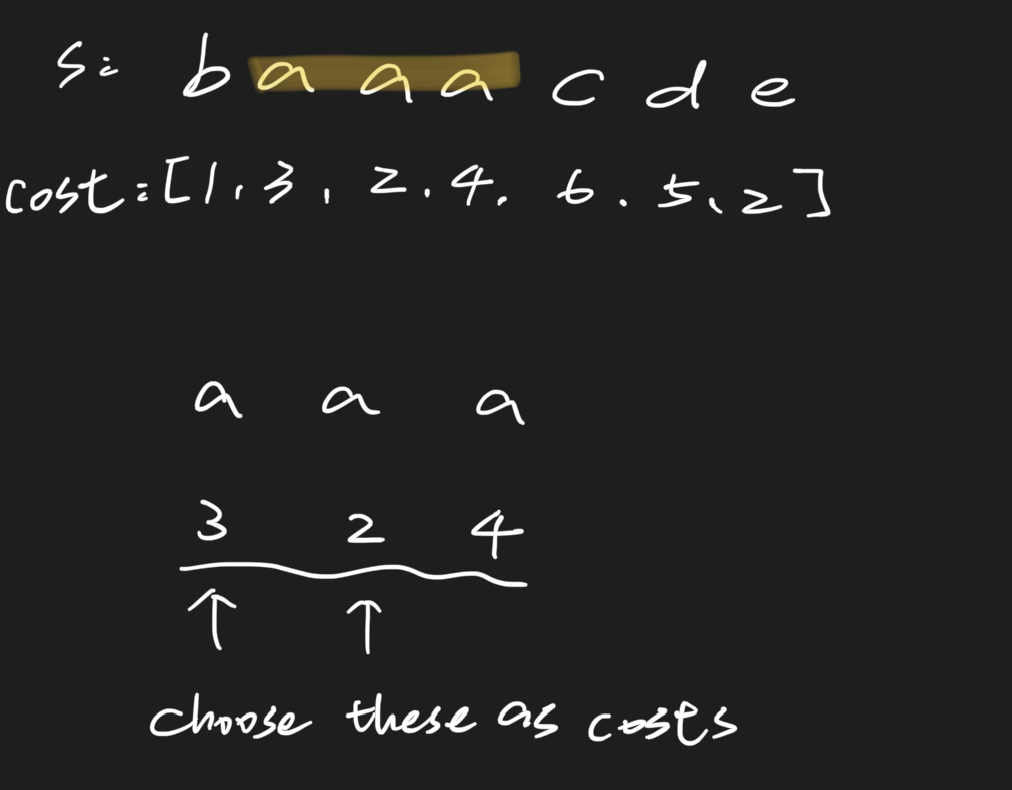 s: b a a a c d e
cost:[1,3,2,4.6.5,2]
a a a
3 2 4
↑ ↑
choose these as costs